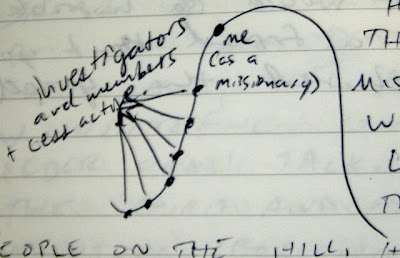 investigators
and members
+ less active.
me
(as a
missionary)
TH
MIS
W
L
T
EOPLE ON THE HILL, H